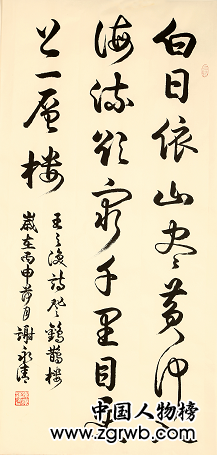 白日依山尽黄河入
海流欲穷千里目更
上一层楼
王之涣诗登鹳鹊楼
岁在丙申月谢永清
中国人物榜
www.zgrwb.com